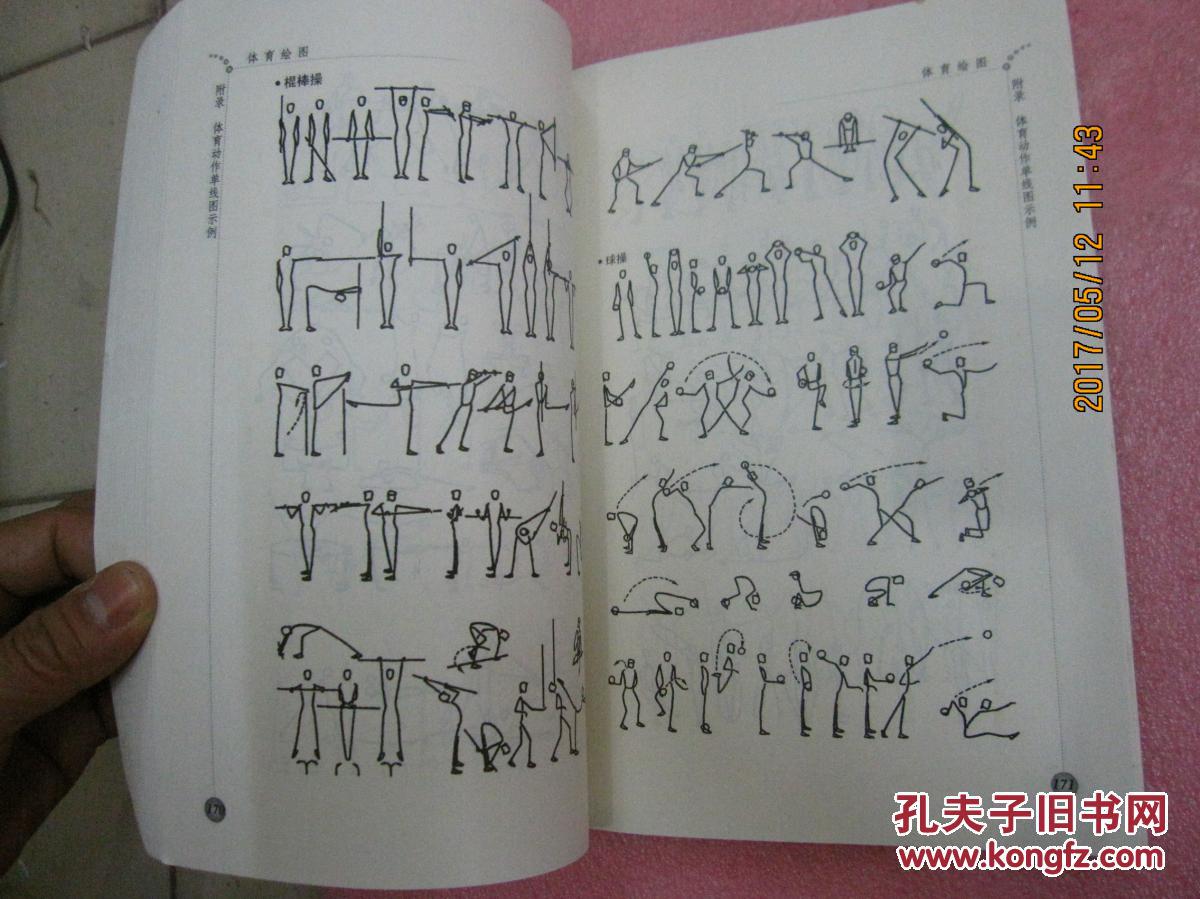 体育绘图
附录 体育动作单线图示例
•棍棒操
170
体育绘图
附录 体育动作单线图示例
•球操
171
2017/05/12 11:43
孔夫子旧书网
www.kongfz.com